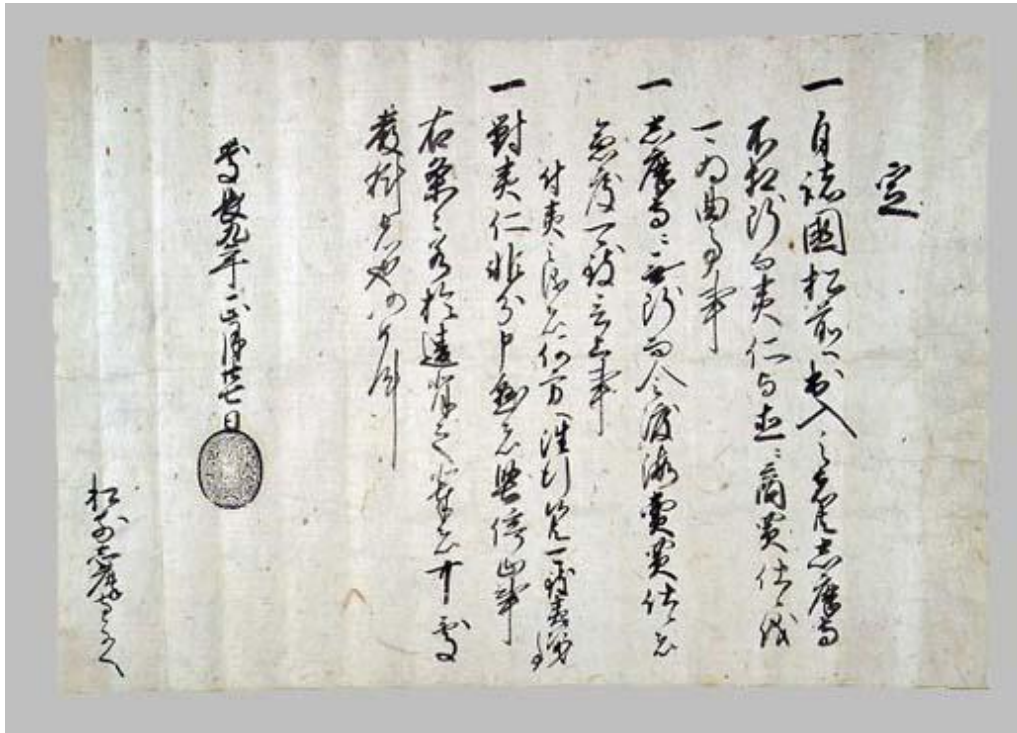 定
一 自諸國松前へ出入之者共志摩守
不相断而夷仁与直ニ商買仕候儀
可為曲事事
一 志摩守ニ無断而令渡海賣買仕候者
急度可致言上事
付夷之儀者何方へ往行候共可致夷次第事
一 對夷仁非分申懸者堅停止事
右条々若於違背之輩者可處
厳科者也仍如件
慶長九年正月廿七日
松前志摩とのへ